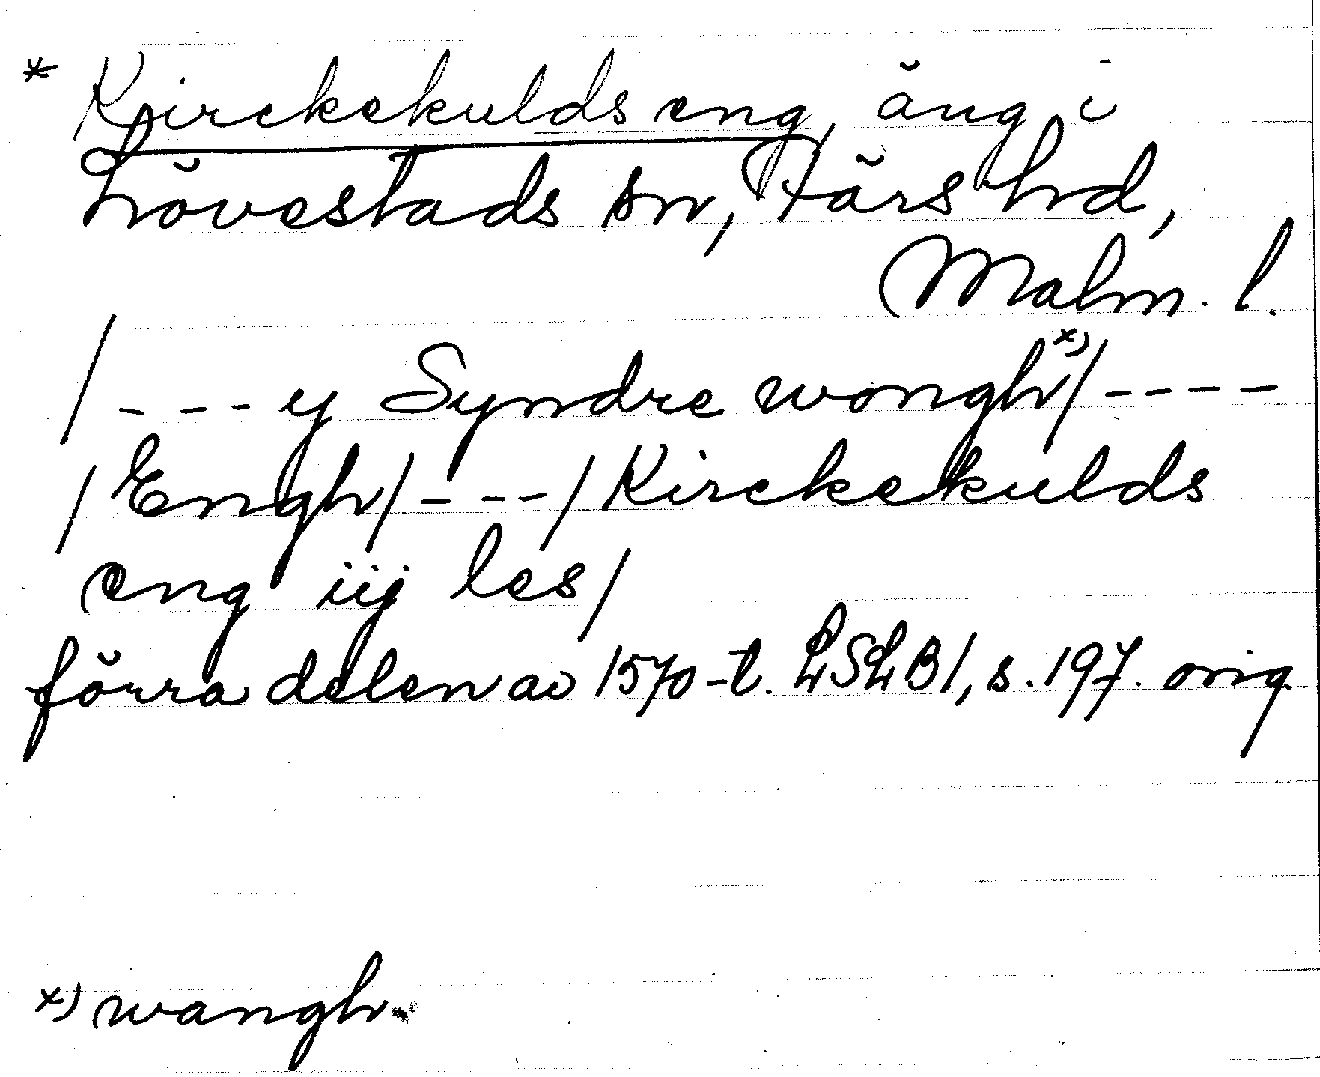 * Kirckekulds eng, äng i
Lövestads sn, Färs hd,
Malm. l.
/ - - - y Syndre wongh x) / - - - -
/ Engh / - - - / Kirckekulds
eng iij les /
förra delen av 1570-t. LSLB 1, s. 197. orig
x) wangh.